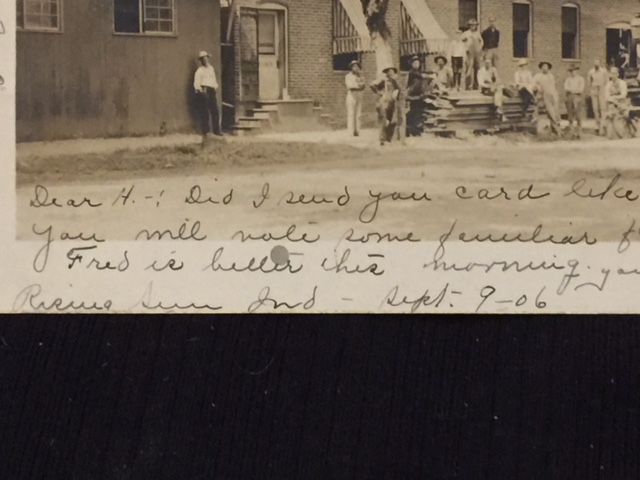 Dear H.-: Did I send you card like
You will note some familiar f
Fred is better this morning. you
Rising Sun Ind - Sept. 9-06